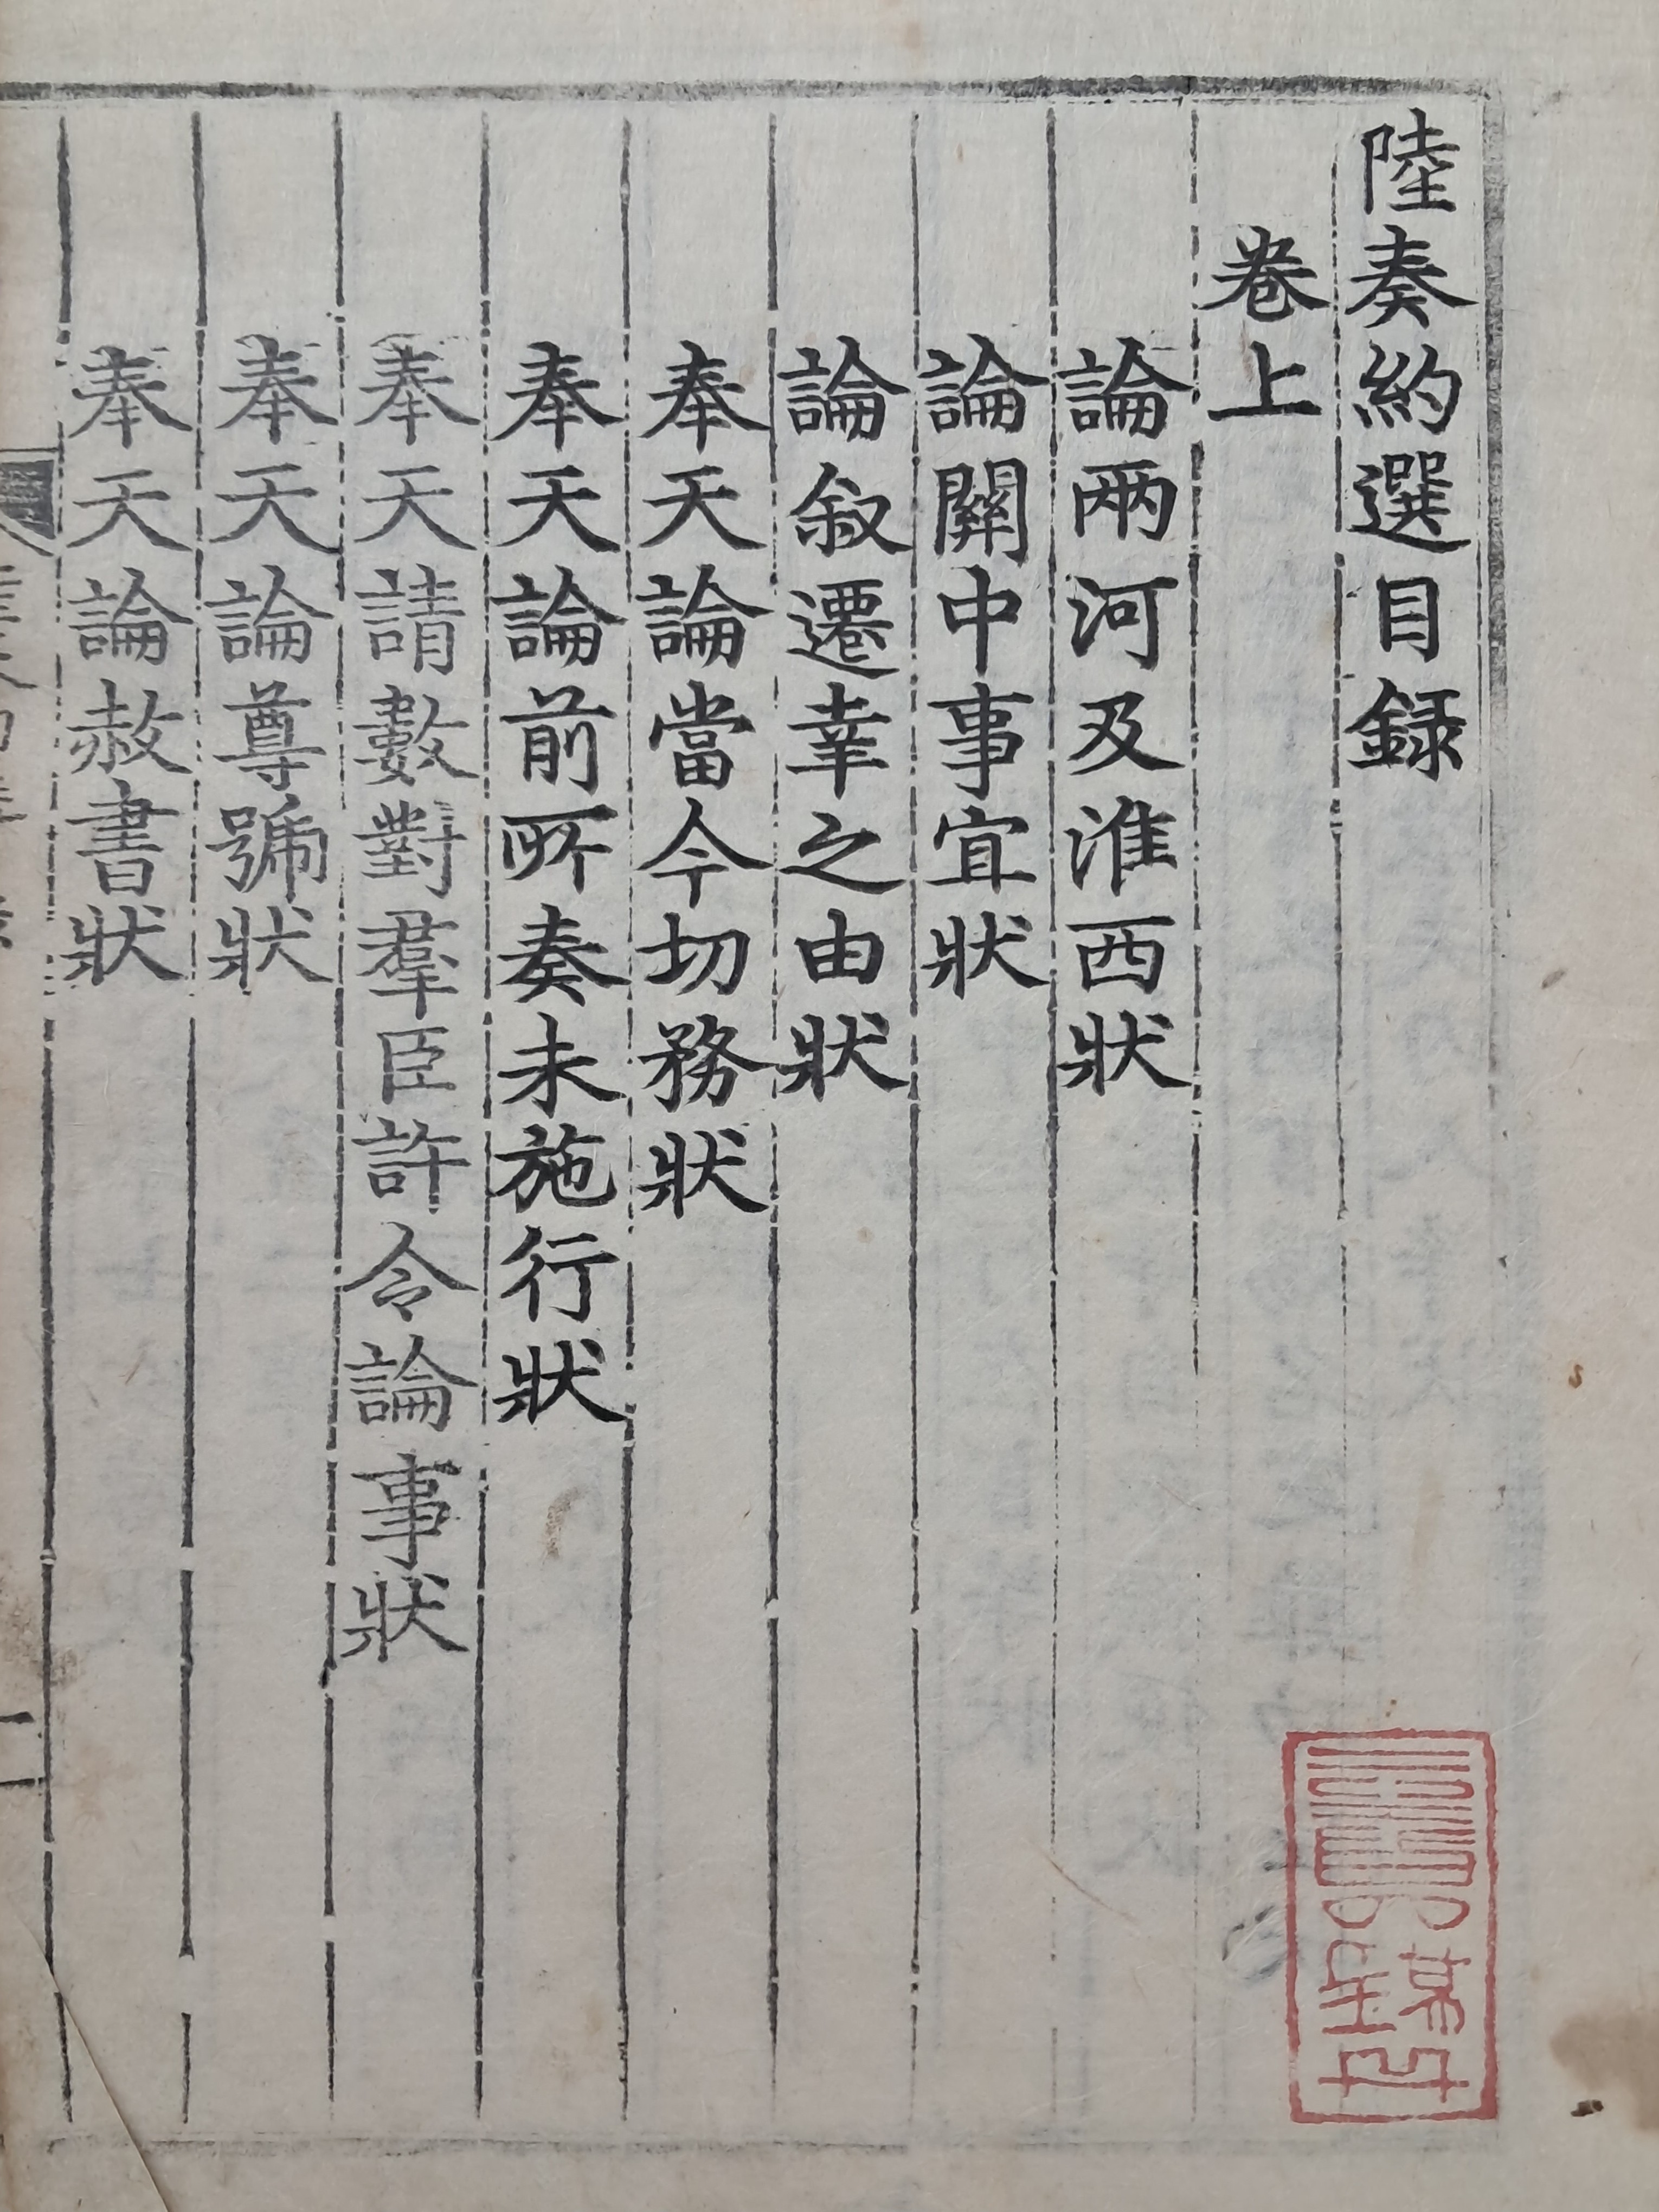 陸奏約選目録
卷上
論兩河及淮西狀
論關中事宜狀
論叙遷幸之由狀
奉天論當今切務狀
奉天論前所奏未施行狀
奉天請數對羣臣許令論事狀
奉天論尊號狀
奉天論赦書狀